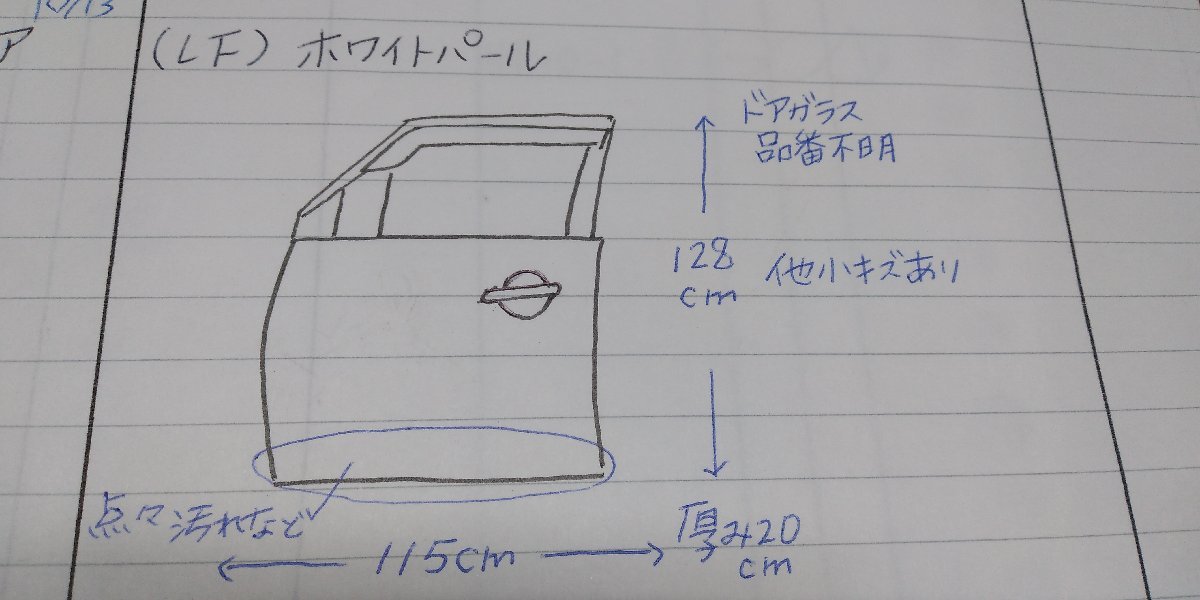 10/13
ア
(LF) ホワイトパール
ドアガラス
品番不明
128
cm
他小キズあり
点々汚れなど
115cm
厚み20
cm